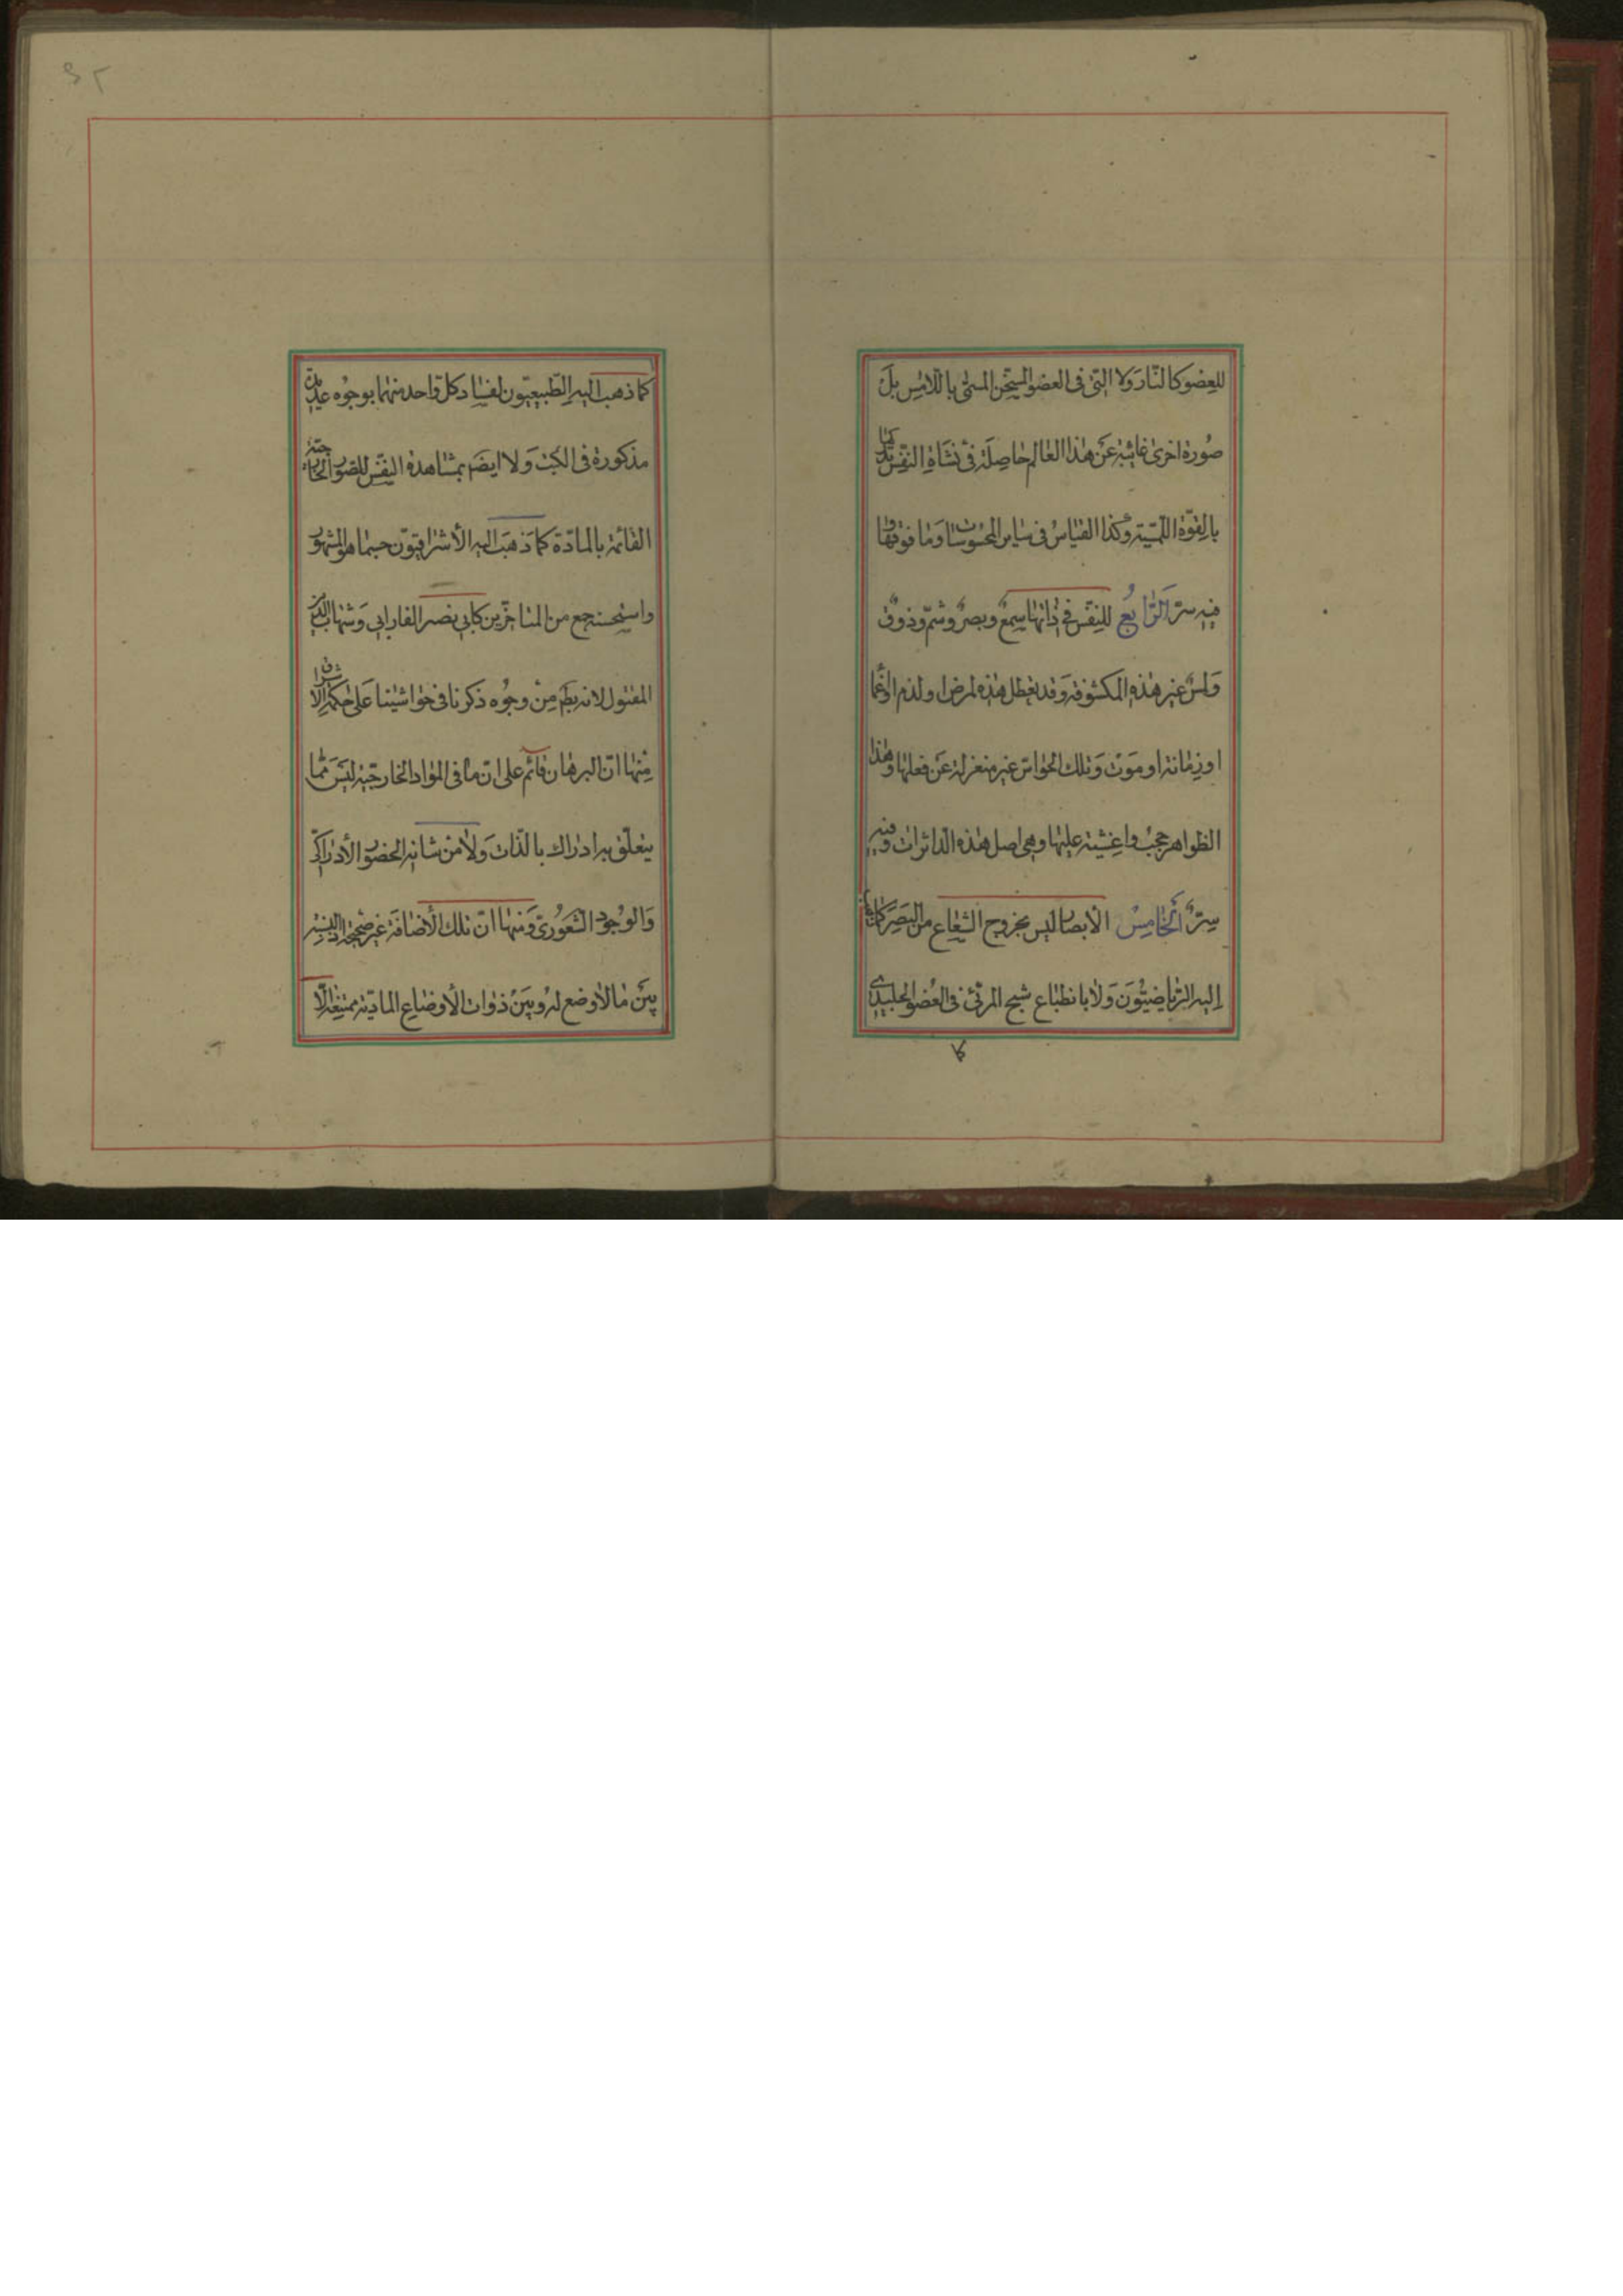 للعضو كالنار ولا التي في العضو المتسخن المسمى باللامس بل
صورة اخرى غائبة عن هذا العالم حاصلة في نشاة النفس تدركها
بالقوة اللمسية وكذا القياس في ساير المحسوسات وما فوقها و
فيه سر الرابع للنفس في ذاتها سمع وبصر وشم وذوق
ولمس غير هذه المكشوفة وقد تعطل هذه لمرض او نوم او اغما
او زمانة او موت وتلك الحواس غير منعزلة عن فعلها وهذا
الظواهر حجب واغشية عليها وهي اصل هذه الداثرات وفيه
سر الخامس الأبصار ليس بخروج الشعاع من البصر كما ذهب
اليه الرياضيون ولا بانطباع شبح المرئي في العضو الجليدي
كا
٣٢
كما ذهب اليه الطبيعيون لفساد كل واحد منهما بوجوه عديدة
مذكورة في الكتب ولا ايضم بمشاهدة النفس للصور الخارجية
القائمة بالمادة كما ذهب اليه الأشراقيون حسبما هو المشهور
واستحسنه جمع من المتاخرين كابي نصر الفارابي وشهاب الدين
المقتول لانه بط من وجوه ذكرنا في حواشينا على حكمة الاشراق
منها ان البرهان قائم على ان ما في المواد الخارجية ليس مما
يتعلق به ادراك بالذات ولا من شانه الحضور الأدراكي
والوجود الشعوري ومنها ان تلك الأضافة غير صحيحة اذ النسبة
بين ما لا وضع له وبين ذوات الأوضاع المادية ممتنعة الا